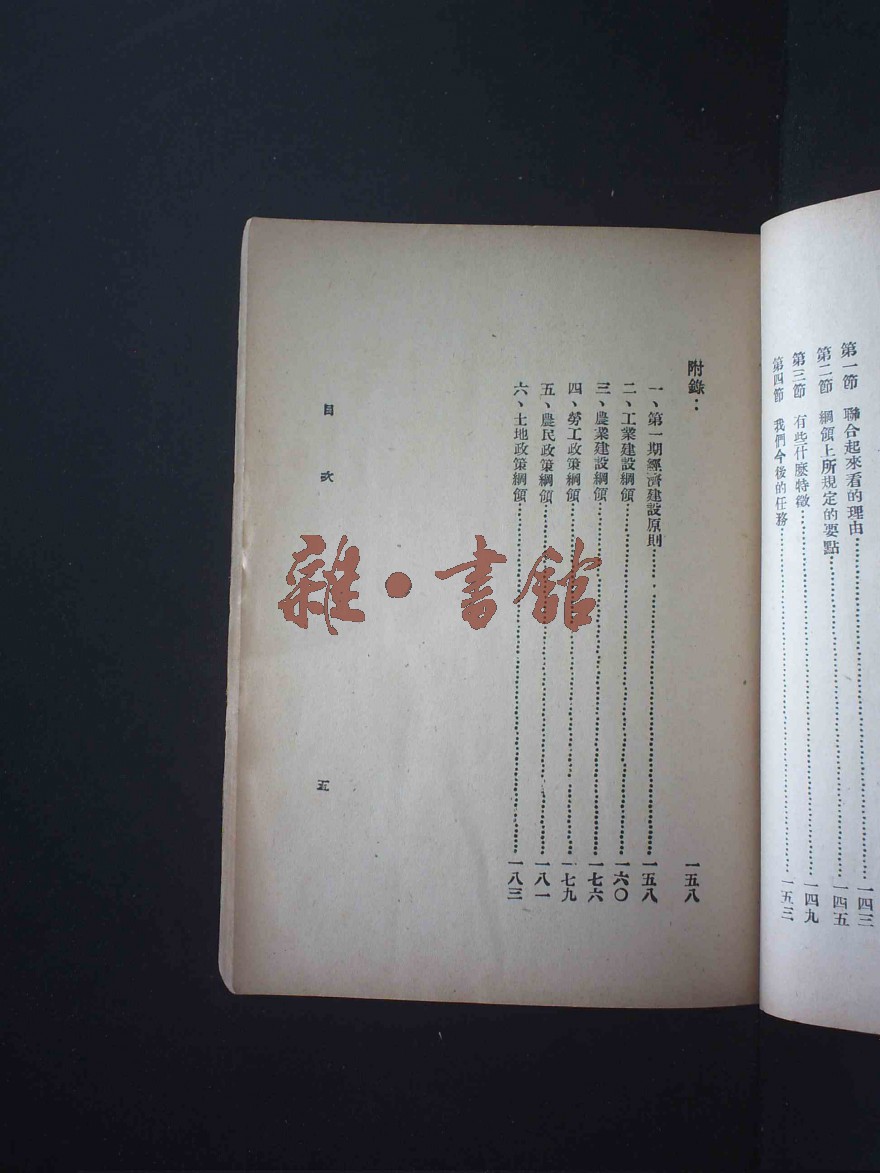 第一節　聯合起來看的理由……一四三
第二節　綱領上所規定的要點……一四五
第三節　有些什麼特徵……一四九
第四節　我們今後的任務……一五三
附錄：　一五八
一、第一期經濟建設原則……一五八
二、工業建設綱領……一六〇
三、農業建設綱領……一七六
四、勞工政策綱領……一七九
五、農民政策綱領……一八一
六、土地政策綱領……一八三
目次　五
雜·書館